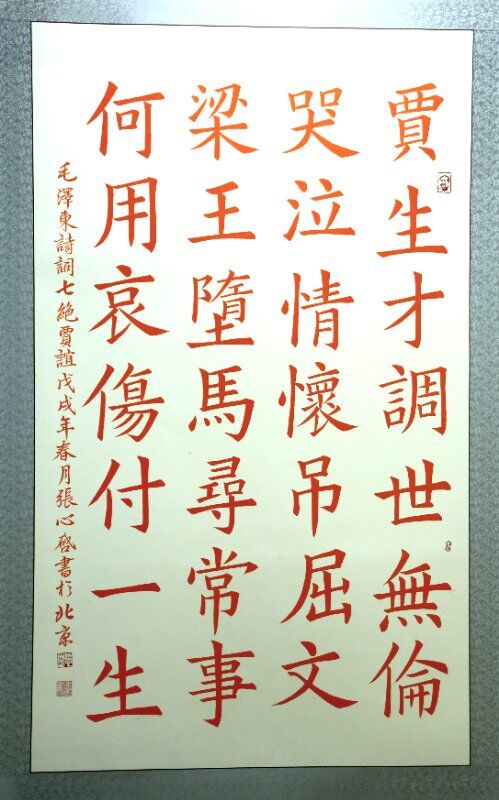 賈生才調世無倫
哭泣情懷吊屈文
梁王墮馬尋常事
何用哀傷付一生
毛澤東詩詞七絶賈誼戊戌年春月張心啓書於北京